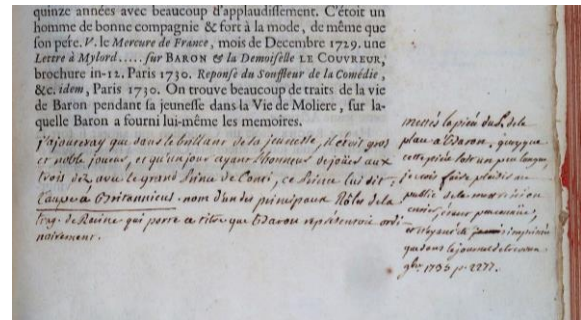 quinze années avec beaucoup d'applaudissement. C'étoit un
homme de bonne compagnie & fort à la mode, de même que
son pére. V. le Mercure de France, mois de Decembre 1729. une
Lettre à Mylord..... sur BARON & la Demoiselle LE COUVREUR,
brochure in-12. Paris 1730. Reponse du Souffleur de la Comédie,
&c. idem, Paris 1730. On trouve beaucoup de traits de la vie
de Baron pendant sa jeunesse dans la Vie de Moliere, sur la-
quelle Baron a fourni lui-même les memoires.
j'ajouteray que dans le brillant de sa jeunesse, il étoit gros
et noble joueur, et qu'un jour ayant l'honneur de joüer aux
trois dez, avec le grand Prince de Conti, ce Prince lui dit,
Taupe à Britannicus. nom d'un des principaux Rôles de la
trag. de Racine qui porte ce titre que Baron représentoit ordi-
nairement.
mettés la piéce du S. de la
place à Baron, quoyque
cette piéce soit un peu longue,
je crois faire plaisir au
public de la
et n'ayant été imprimée
que dans le journal de
9bre 1735 p. 2277.